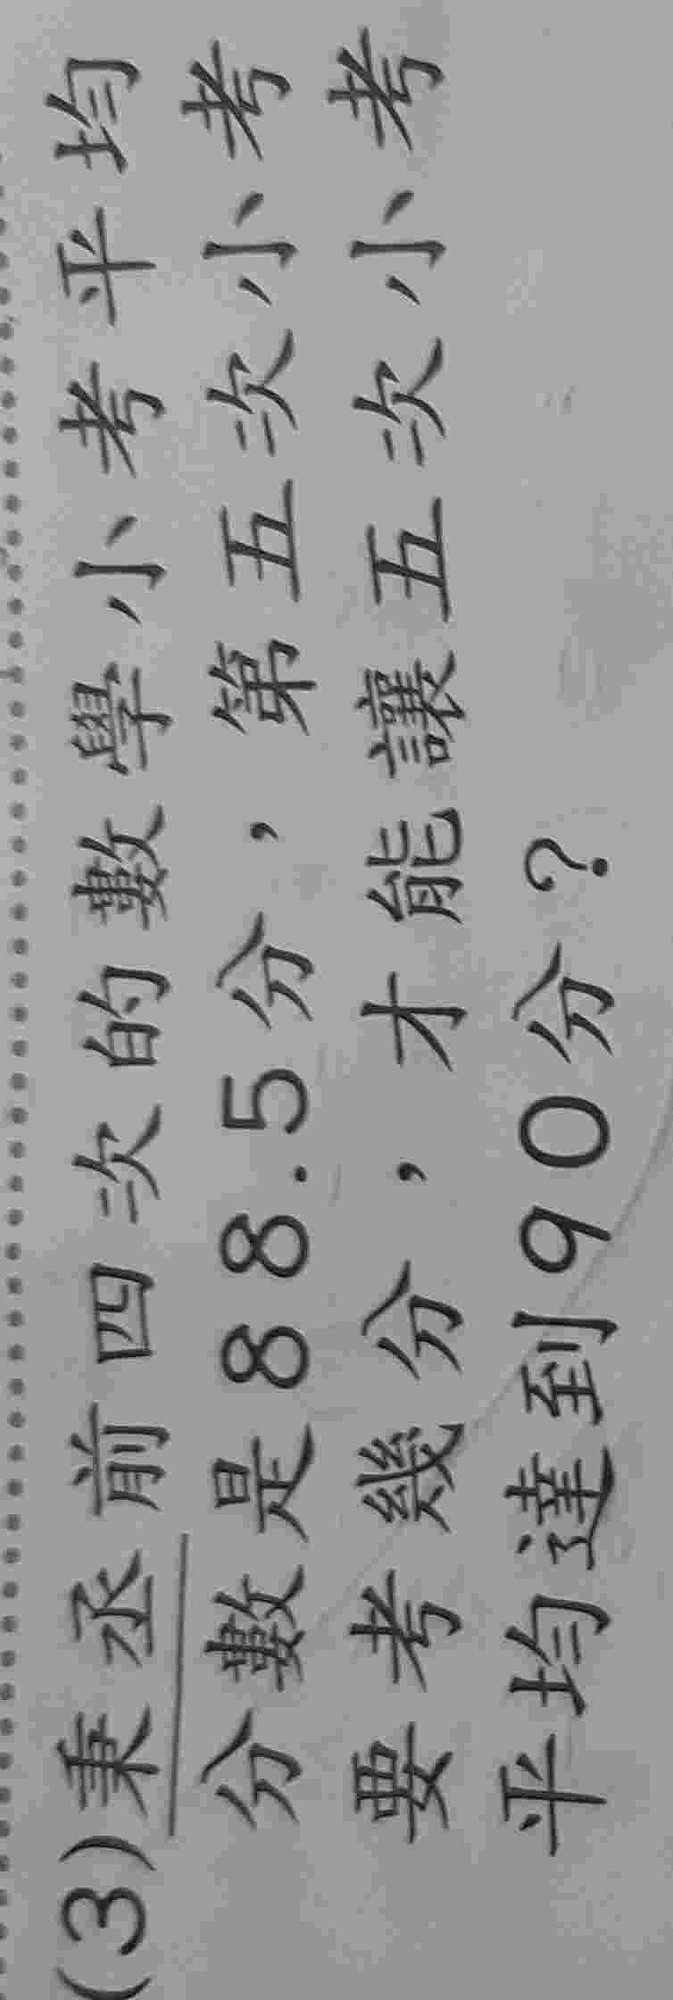 (3)秉丞前四次的數學小考平均
分數是88.5分，第五次小考
要考幾分，才能讓五次小考
平均達到90分？